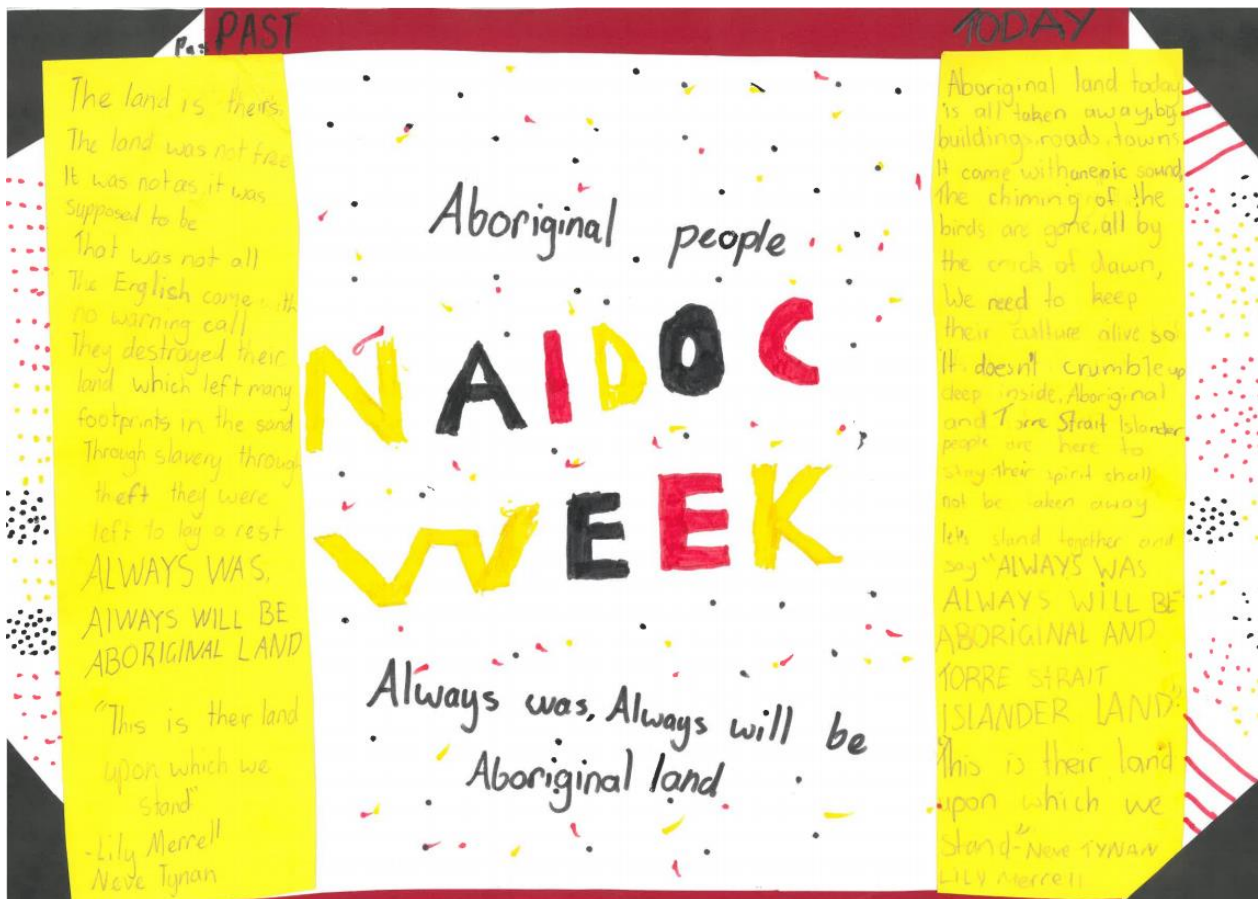 PAST
The land is theirs,
The land was not free
It was not as it was
supposed to be
That was not all
The English came with
no warning call
They destroyed their
land which left many
footprints in the sand
Through slavery through
theft they were
left to lag a rest
ALWAYS WAS,
AlWAYS WILL BE
ABORIGINAL LAND
"This is their land
upon which we
stand"
-Lily Merrell
Neve Tynan
Aboriginal people
NAIDOC
WEEK
Always was, Always will be
Aboriginal land
TODAY
Aboriginal land today
is all taken away, by
buildings, roads, towns
It came with an epic sound,
The chiming of the
birds are gone, all by
the crick of dawn,
We need to keep
their culture alive so
It doesn't crumble up
deep inside, Aboriginal
and Torre Strait Islander
people are here to
stay their spirit shall
not be taken away
lets stand together and
say "ALWAYS WAS
ALWAYS WILL BE
ABORIGINAL AND
TORRE STRAIT
ISLANDER LAND"
"This is their land
upon which we
stand"- Neve TYNAN
LILY Merrell